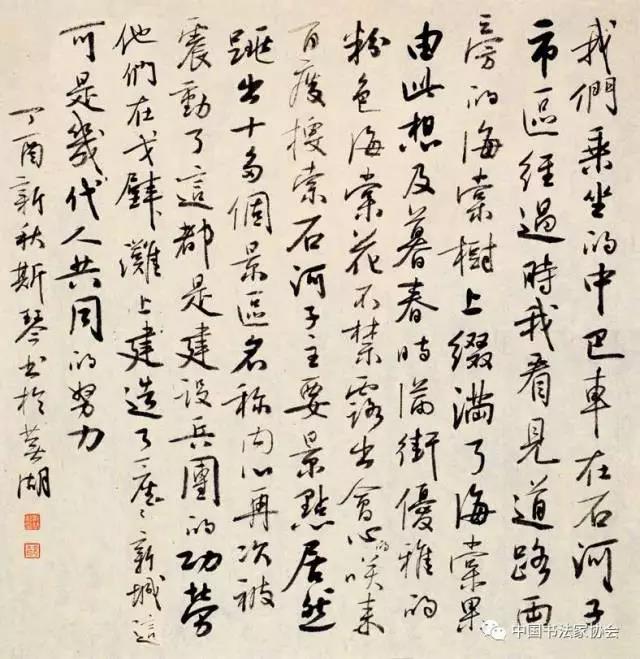 我們乘坐的中巴車在石河子
市區經過時我看見道路兩
旁的海棠樹上綴滿了海棠果
由此想及暮春時滿街優雅的
粉色海棠花不禁露出會心的咲来
百度搜索石河子主要景點居然
跳出十多個景區名称内心再次被
震動了這都是建设兵團的功勞
他們在戈壁灘上建造了一座座新城這
可是幾代人共同的努力
丁酉新秋斯琴书於芜湖
中国书法家协会